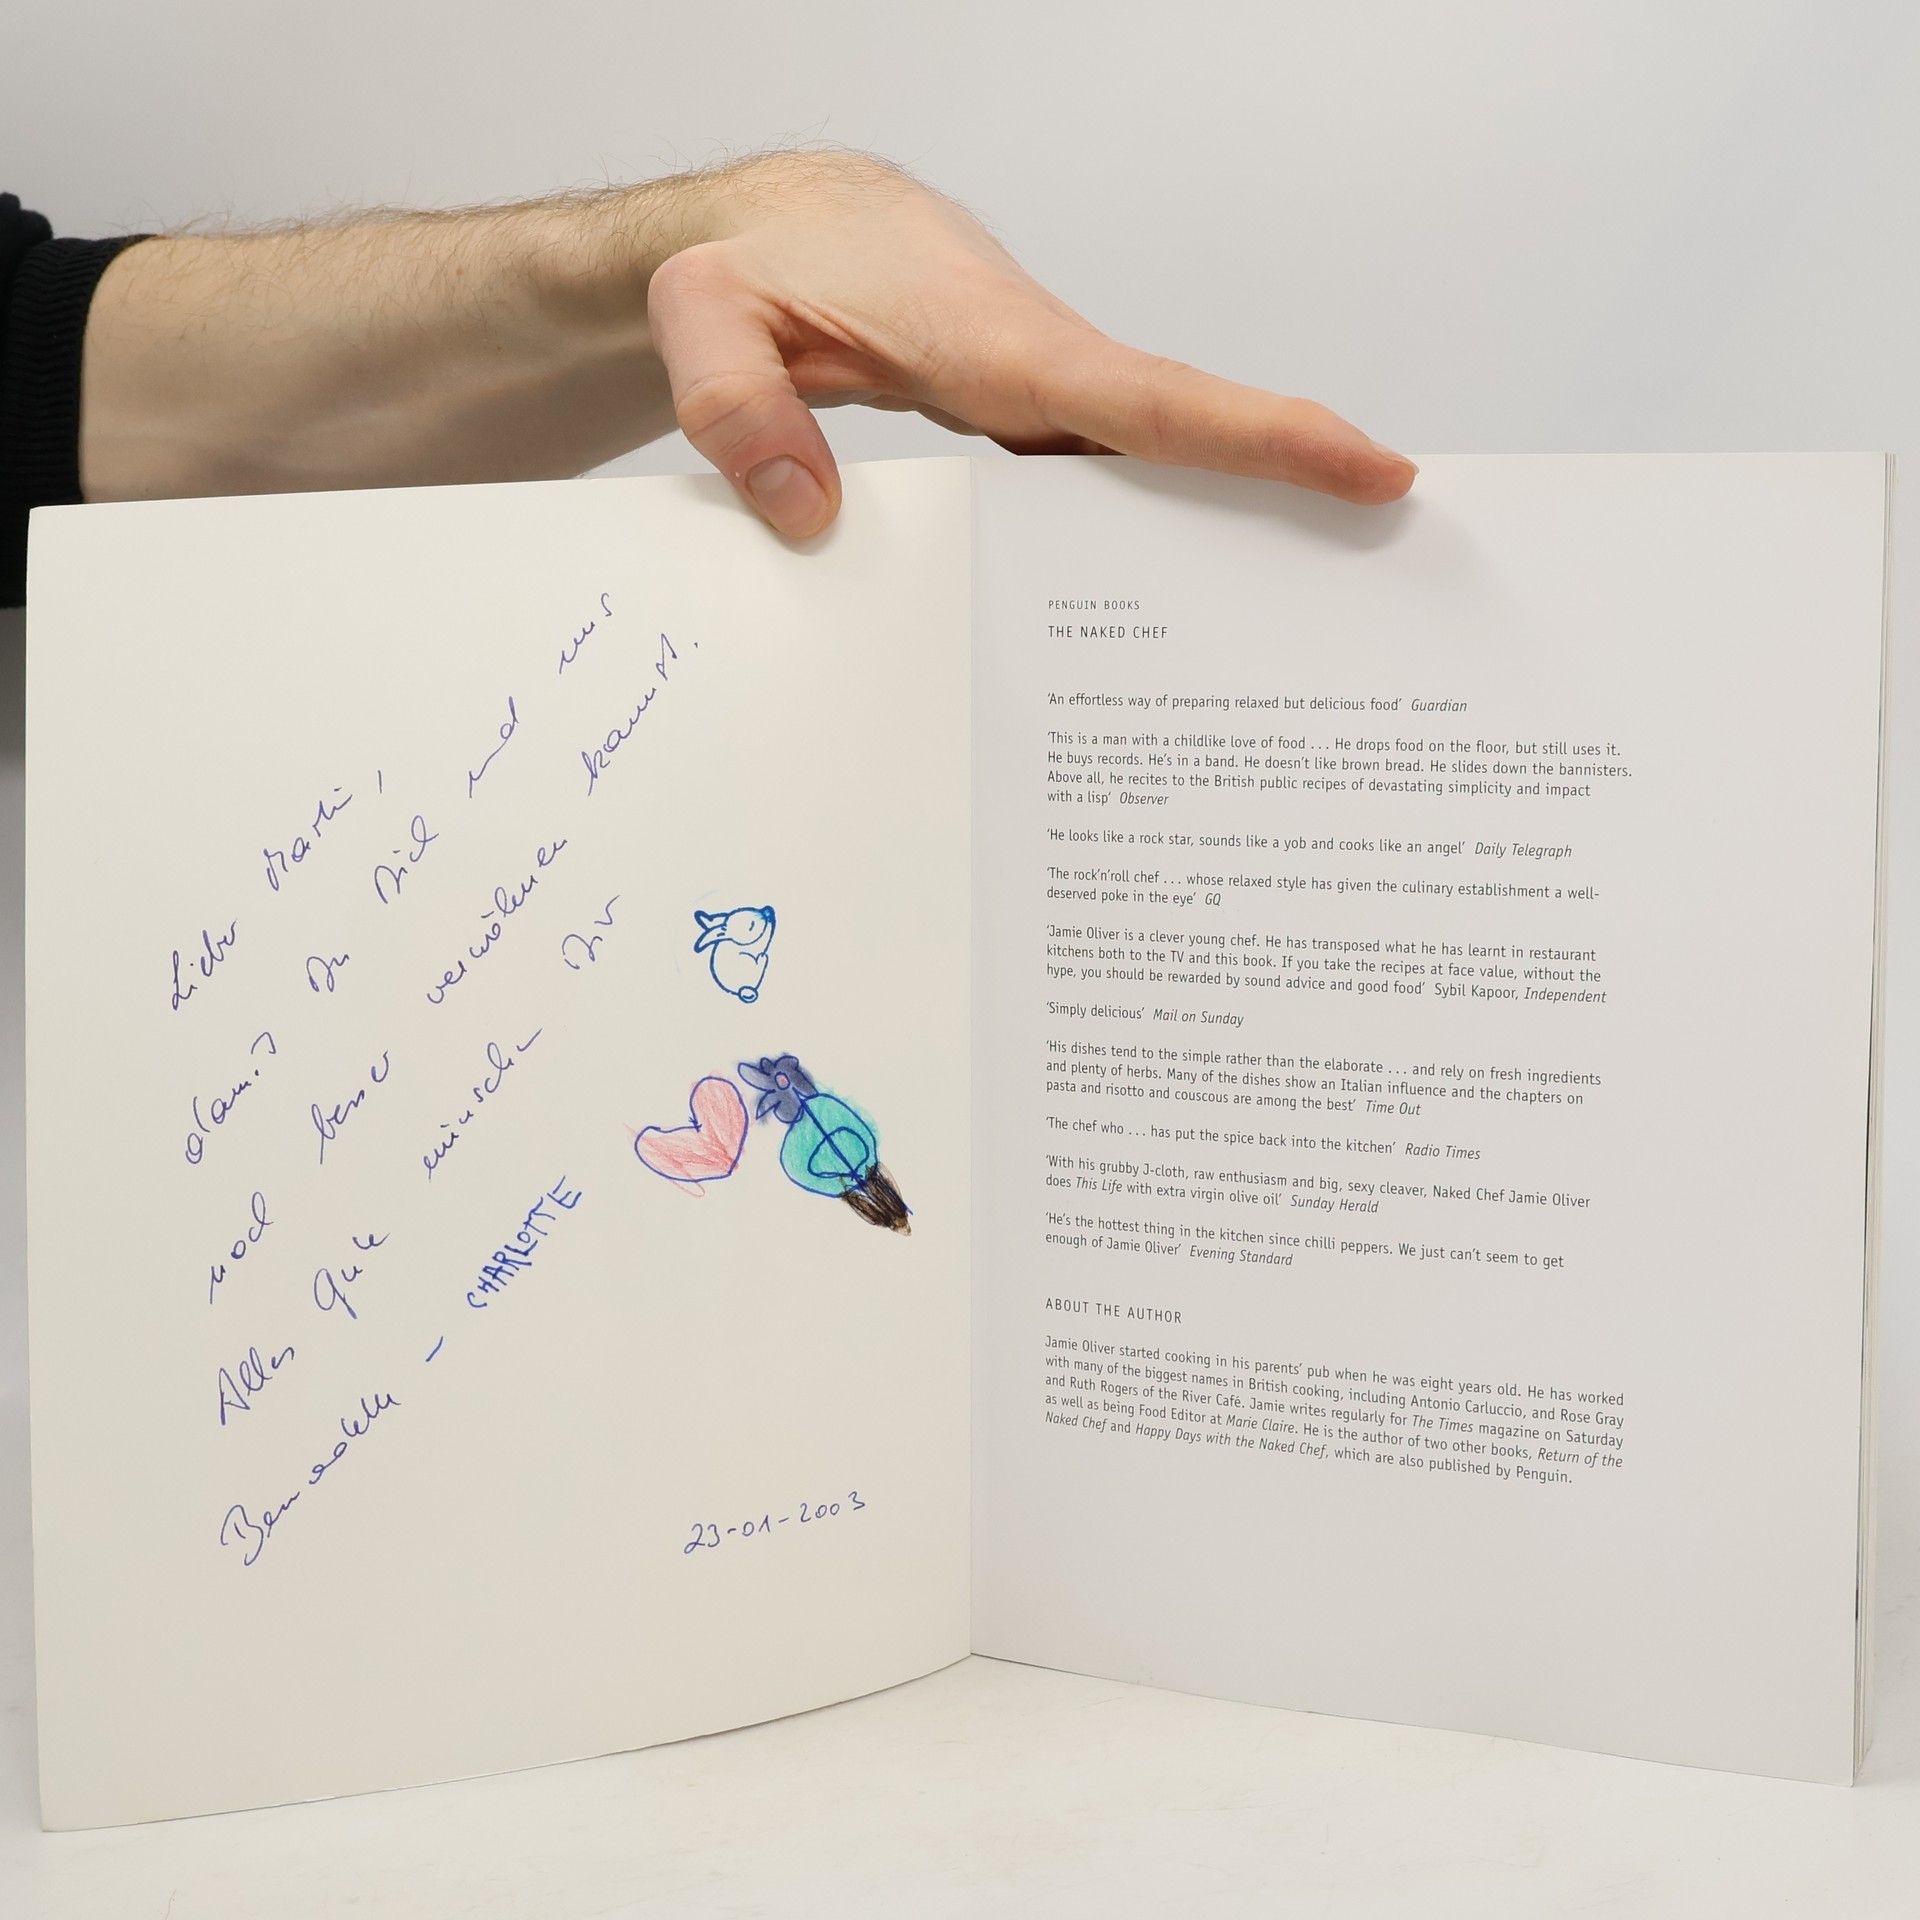 Lieber Martin,
damit Du Dich und uns
noch besser verwöhnen kannst.
Alles Gute wünschen Dir
Bernadette - CHARLOTTE
23-01-2003
PENGUIN BOOKS
THE NAKED CHEF
'An effortless way of preparing relaxed but delicious food' Guardian
'This is a man with a childlike love of food ... He drops food on the floor, but still uses it.
He buys records. He's in a band. He doesn't like brown bread. He slides down the bannisters.
Above all, he recites to the British public recipes of devastating simplicity and impact
with a lisp' Observer
'He looks like a rock star, sounds like a yob and cooks like an angel' Daily Telegraph
'The rock'n'roll chef ... whose relaxed style has given the culinary establishment a well-
deserved poke in the eye' GQ
'Jamie Oliver is a clever young chef. He has transposed what he has learnt in restaurant
kitchens both to the TV and this book. If you take the recipes at face value, without the
hype, you should be rewarded by sound advice and good food' Sybil Kapoor, Independent
'Simply delicious' Mail on Sunday
'His dishes tend to the simple rather than the elaborate ... and rely on fresh ingredients
and plenty of herbs. Many of the dishes show an Italian influence and the chapters on
pasta and risotto and couscous are among the best' Time Out
'The chef who ... has put the spice back into the kitchen' Radio Times
'With his grubby J-cloth, raw enthusiasm and big, sexy cleaver, Naked Chef Jamie Oliver
does This Life with extra virgin olive oil' Sunday Herald
'He's the hottest thing in the kitchen since chilli peppers. We just can't seem to get
enough of Jamie Oliver' Evening Standard
ABOUT THE AUTHOR
Jamie Oliver started cooking in his parents' pub when he was eight years old. He has worked
with many of the biggest names in British cooking, including Antonio Carluccio, and Rose Gray
and Ruth Rogers of the River Café. Jamie writes regularly for The Times magazine on Saturday
as well as being Food Editor at Marie Claire. He is the author of two other books, Return of the
Naked Chef and Happy Days with the Naked Chef, which are also published by Penguin.